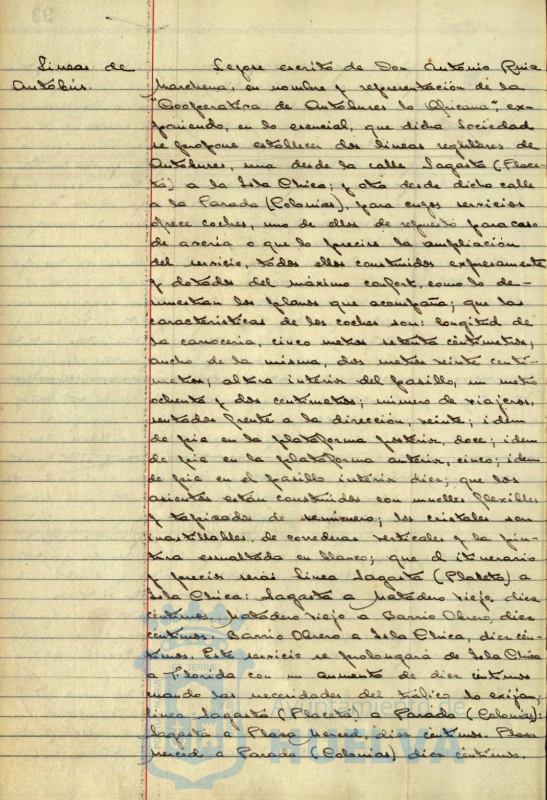 Lineas de
Autobús.
Leyose escrito de Don Antonio Ruiz
Marchena, en nombre y representación de la
"Cooperativa de Autobuses la Africana", ex-
poniendo, en lo esencial, que dicha Sociedad
se propone establecer dos lineas regulares de
Autobuses, una desde la calle Sagasta (Place-
ta) a la Isla Chica; y otra desde dicha calle
a la Parada (Colonias), para cuyos servicios
ofrece coches, uno de ellos de repuesto para caso
de averia o que lo precise la ampliación
del servicio, todos ellos construidos expresamente
y dotados del máximo confort, como lo de-
muestran los planos que acompaña; que las
caracteristicas de los coches son: longitud de
la carroceria, cinco metros setenta centimetros;
ancho de la misma, dos metros veinte centi-
metros; altura interior del pasillo, un metro
ochenta y dos centimetros; número de viajeros,
sentados frente a la dirección, veinte; idem
de pie en la plataforma posterior, doce; idem
de pie en la plataforma anterior, cinco; idem
de pie en el pasillo interior diez; que los
asientos están construidos con muelles flexibles
y tapizados de semicuero; los cristales son
inastillables, de correderas verticales y la pin-
tura esmaltada en blanco; que el itinerario
y precios será: Linea Sagasta (Placeta) a
Isla Chica: Sagasta a Matadero viejo, diez
céntimos. Matadero viejo a Barrio Obrero, diez
céntimos. Barrio Obrero a Isla Chica, diez cén-
timos. Este servicio se prolongará de Isla Chica
a Florida con un aumento de diez céntimos
cuando las necesidades del tráfico lo exijan;
linea Sagasta (Placeta) a Parada (Colonias):
Sagasta a Plaza Merced, diez céntimos. Plaza
Merced a Parada (Colonias) diez céntimos.
TERRE
Ayuntamiento de
HUELVA